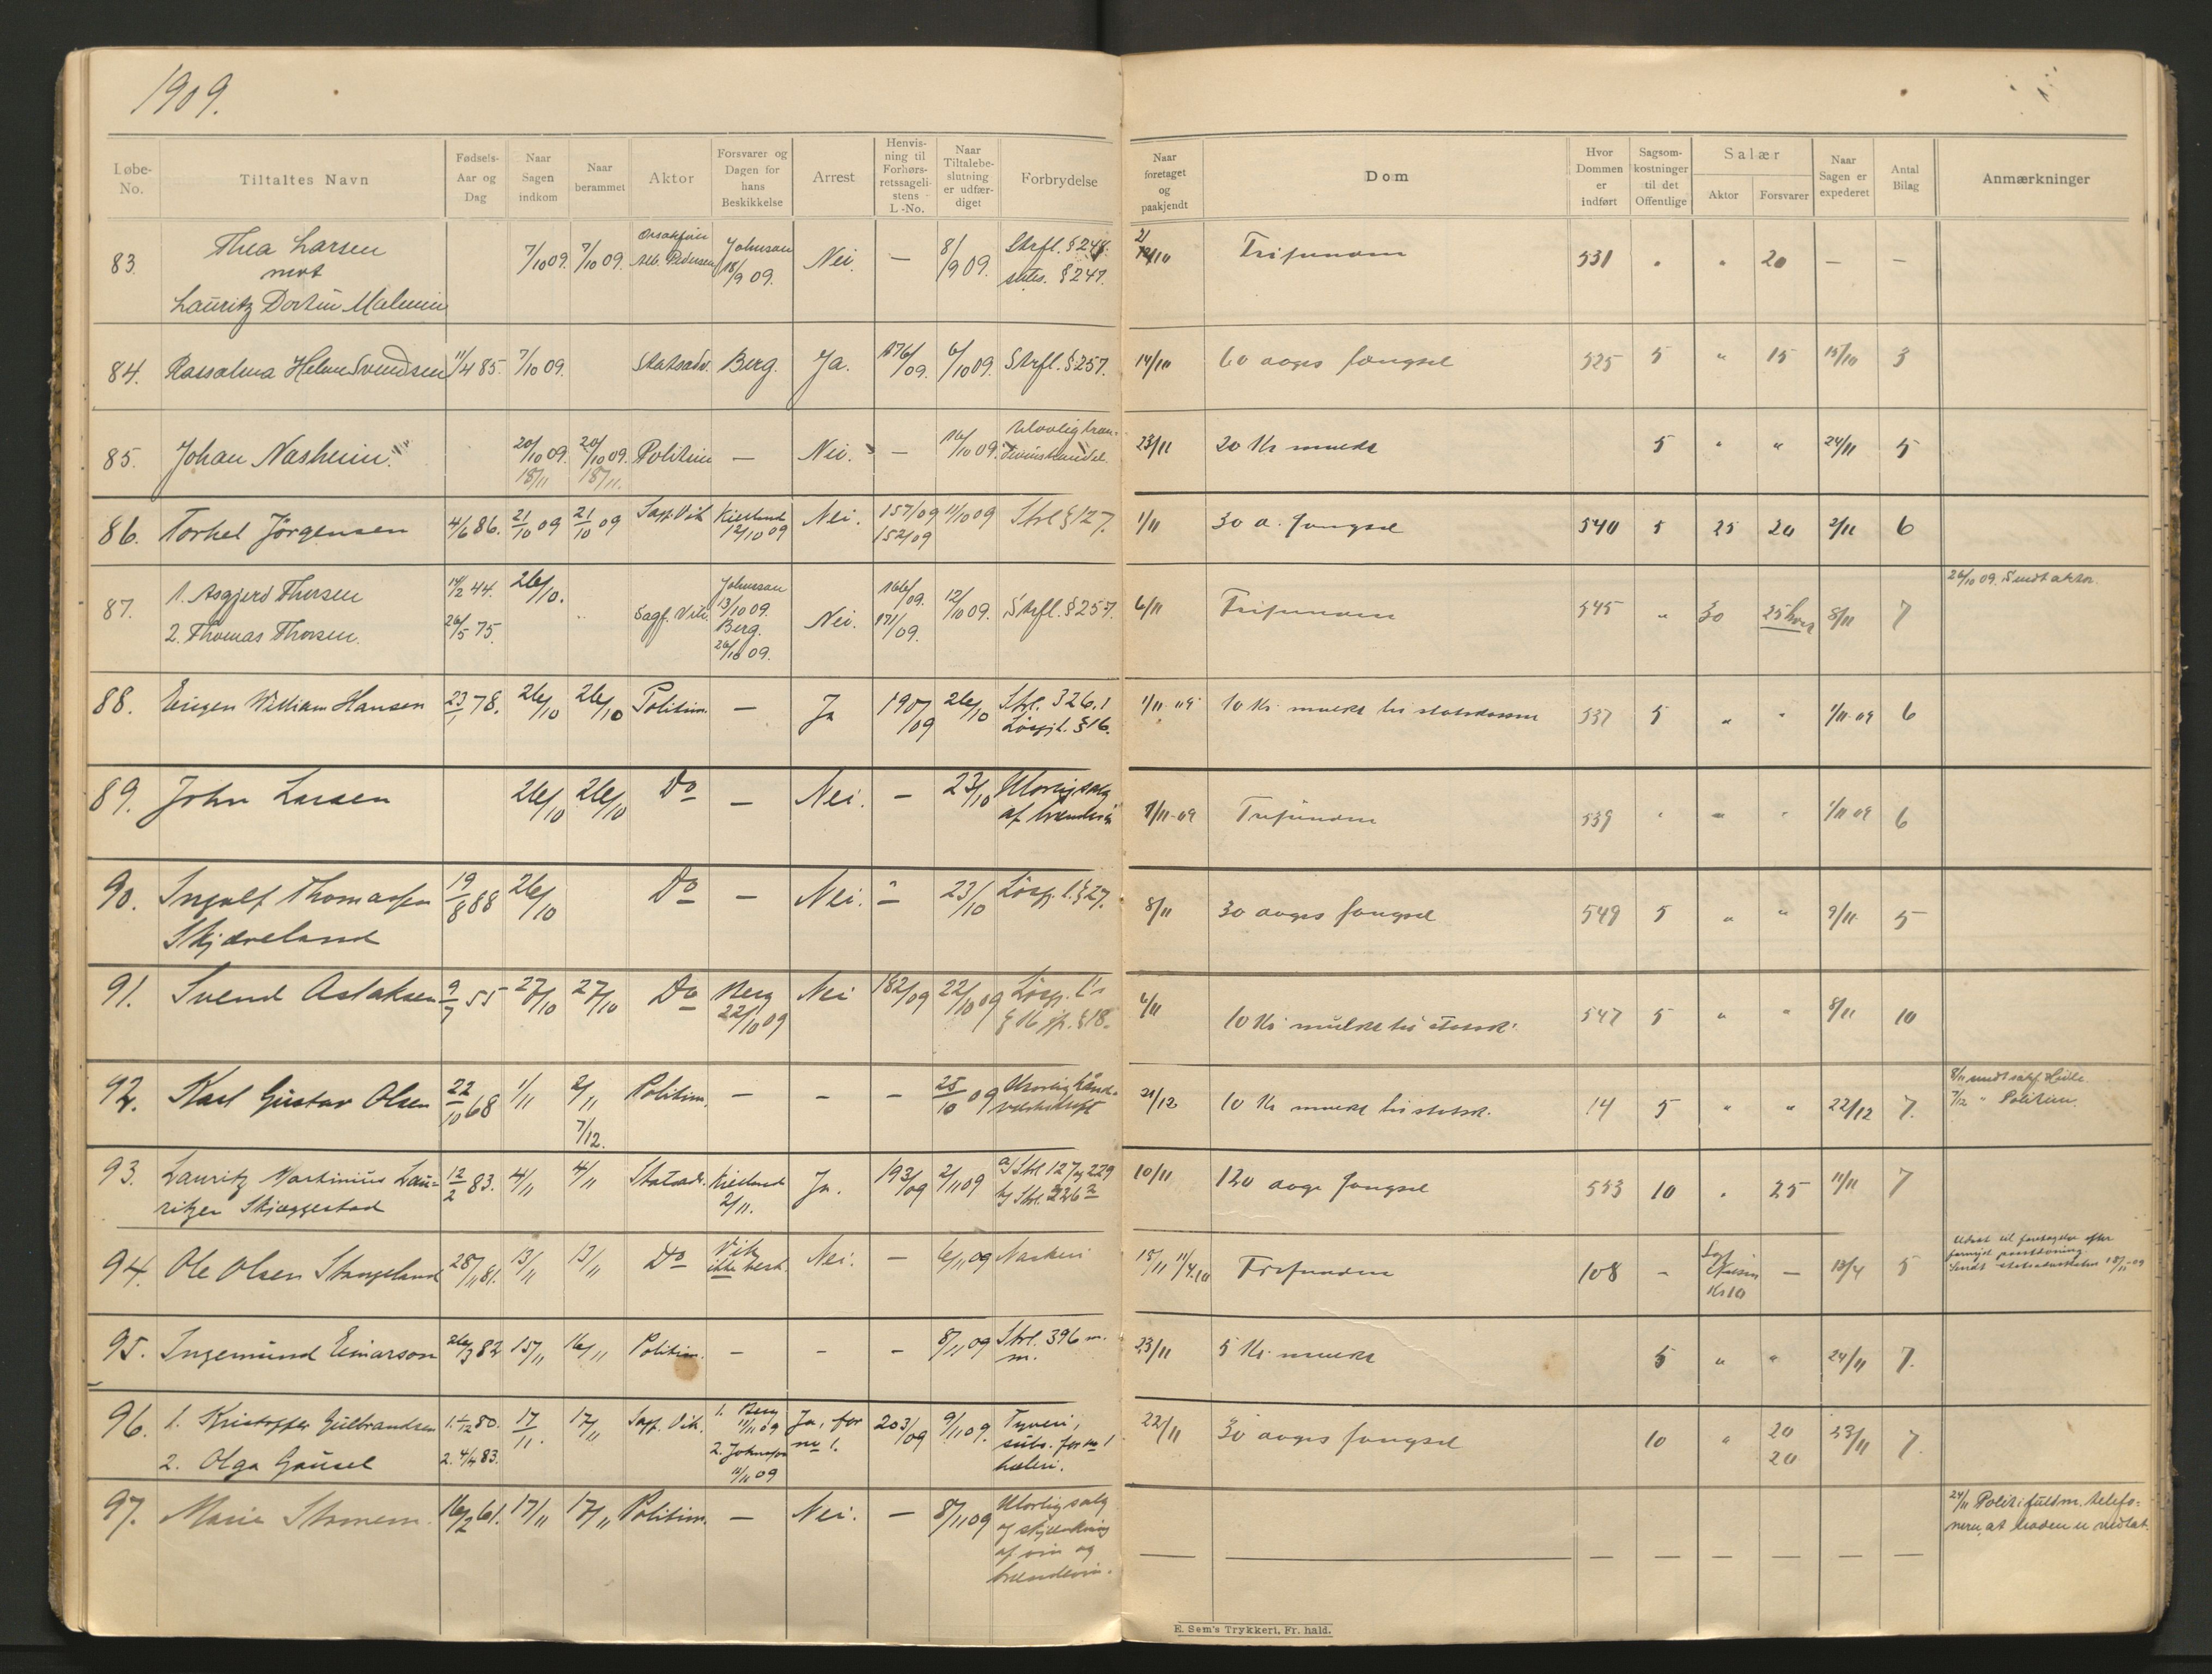 1909.
Løbe-No. Tiltaltes Navn Fødsels-Aar og Dag Naar Sagen indkom Naar berammet Aktor Forsvarer og Dagen for hans Beskikkelse Arrest Henvisning til Forhørsretssagelistens L.-No. Naar Tiltalebeslutning er udfærdiget Forbrydelse Naar foretaget og paakjendt Dom Hvor Dommen er indført Sagsomkostninger til det Offentlige Salær Aktor Forsvarer Naar Sagen er expederet Antal Bilag Anmærkninger
83. Thea Larsen 7/10 09. 7/10 09. Johnsen 18/9 09. Nei. — 8/9 09. Strfl. § 248. 21/10 Frifunden 531 " " 20 — —
mot
subs. § 247.
Lauritz
84. Helene Svendsen 11/4 85. 7/10 09. Statsadv. Berg. Ja. 176/09. 6/10 09. Strfl. § 257. 14/10 60 dages fængsel 525 5 " 15 15/10 3
85. Johan Nasheim. 20/10 09. 20/10 09. Politiet — Nei. — 16/10 09. Ulovlig brændevinshandel. 23/11 20 Kr mulkt 5 " " 24/11 5
18/11 18/11.
86. Torkel Jörgensen 4/6 86. 21/10 09 21/10 09 Sagf. Vik Kielland 12/10 09 Nei. 157/09 11/10 09 Strl § 127. 1/11 30 d. fængsel 540 5 25 20 2/11 6
152/09
87. 1. Asgjerd Thorsen 14/2 44. 26/10. Sagf. Vik. Johnsen 13/10 09. Nei. 166/09. 12/10 09. Strfl. § 257. 6/11 Frifunden 545 " 30 25 hver 8/11 7 26/10 09. Sendt aktor.
2. Thomas Thorsen. 26/5 75. Berg. 26/10 09. 171/09.
88. Eugen William Hansen 23/1 78. 26/10 26/10 Politiet. — Ja 190/09 26/10 Strl. 326.1 1/11-09 10 Kr. mulkt til statskassen 537 5 " " 1/11-09 6
Løsgjl. § 16.
89. John Larsen 26/10 26/10 Do — Nei. — 23/10 Ulovlig salg 1/11-09 Frifunden 539 " " " 1/11 09 6
af brændevin
90. Ingolf Thomassen 19/8 88 26/10 Do — Nei. — 23/10 Løsgj. l. § 27. 8/11 30 dages fængsel 549 5 " " 9/11 5
Skjæveland
91. Svend Aslaksen 9/7 55 27/10 27/10 Do Berg 22/10 09 Nei 182/09 22/10 09 Løsgj. l's 6/11 10 Kr mulkt til statsk. 547 5 " " 8/11 10
§ 16 jfr. § 18.
92. Karl Gustav Olsen 22/10 68 1/11 2/11 Politiet. — — — 25/10 09 21/12 10 Kr mulkt til statsk. 14 5 " " 22/12 7. 8/11 sendt sakf.
7/12. 7/12 " Politiet.
93. Lauritz Martinius Lau- 12/2 83. 4/11 4/11 Statsadv. Kielland 2/11. Ja. 193/09 2/11 09 a) Strl 127 og 229 10/11 120 dage fængsel 553 10 " 25 11/11 7
ritzen Skjæggestad
94. Ole Olsen Stangeland 28/11 81. 13/11 13/11 Do Vik Nei. — 6/11 09 15/11 11/4.10 Frifunden 108 — Kr 10 — 13/4 5 Udsat til foretagelse efter
ikke besk.
95. Ingemund Einarson 26/3 82 15/11 16/11 Politiet. — — — 8/11 09 Strl. 396 m. 23/11 5 Kr. mulkt 5 " " 24/11 7.
m.
96. 1. Kristoffer Gulbrandsen 80. 17/11. 17/11 Sagf. Vik. 1. Berg 11/11 09 Ja, for 203/09 9/11 09. Tyveri, 22/11 30 dages fængsel 10 " 20 23/11 7.
no 1. subs. for no 1
2. Olga Gausel 2. 4/4 83. 2. Johnsen 11/11 09 hæleri. 20
97. Marie 16/2 61. 17/11 17/11 Politiet. — Nei. — 8/11 09 Ulovlig salg 24/11 Politifuldm. telefo-
og skjænkning nerer, at boden er vedtat.
af vin og — — — — — — — —
brændevin.
E. Sem's Trykkeri, Fr. hald.